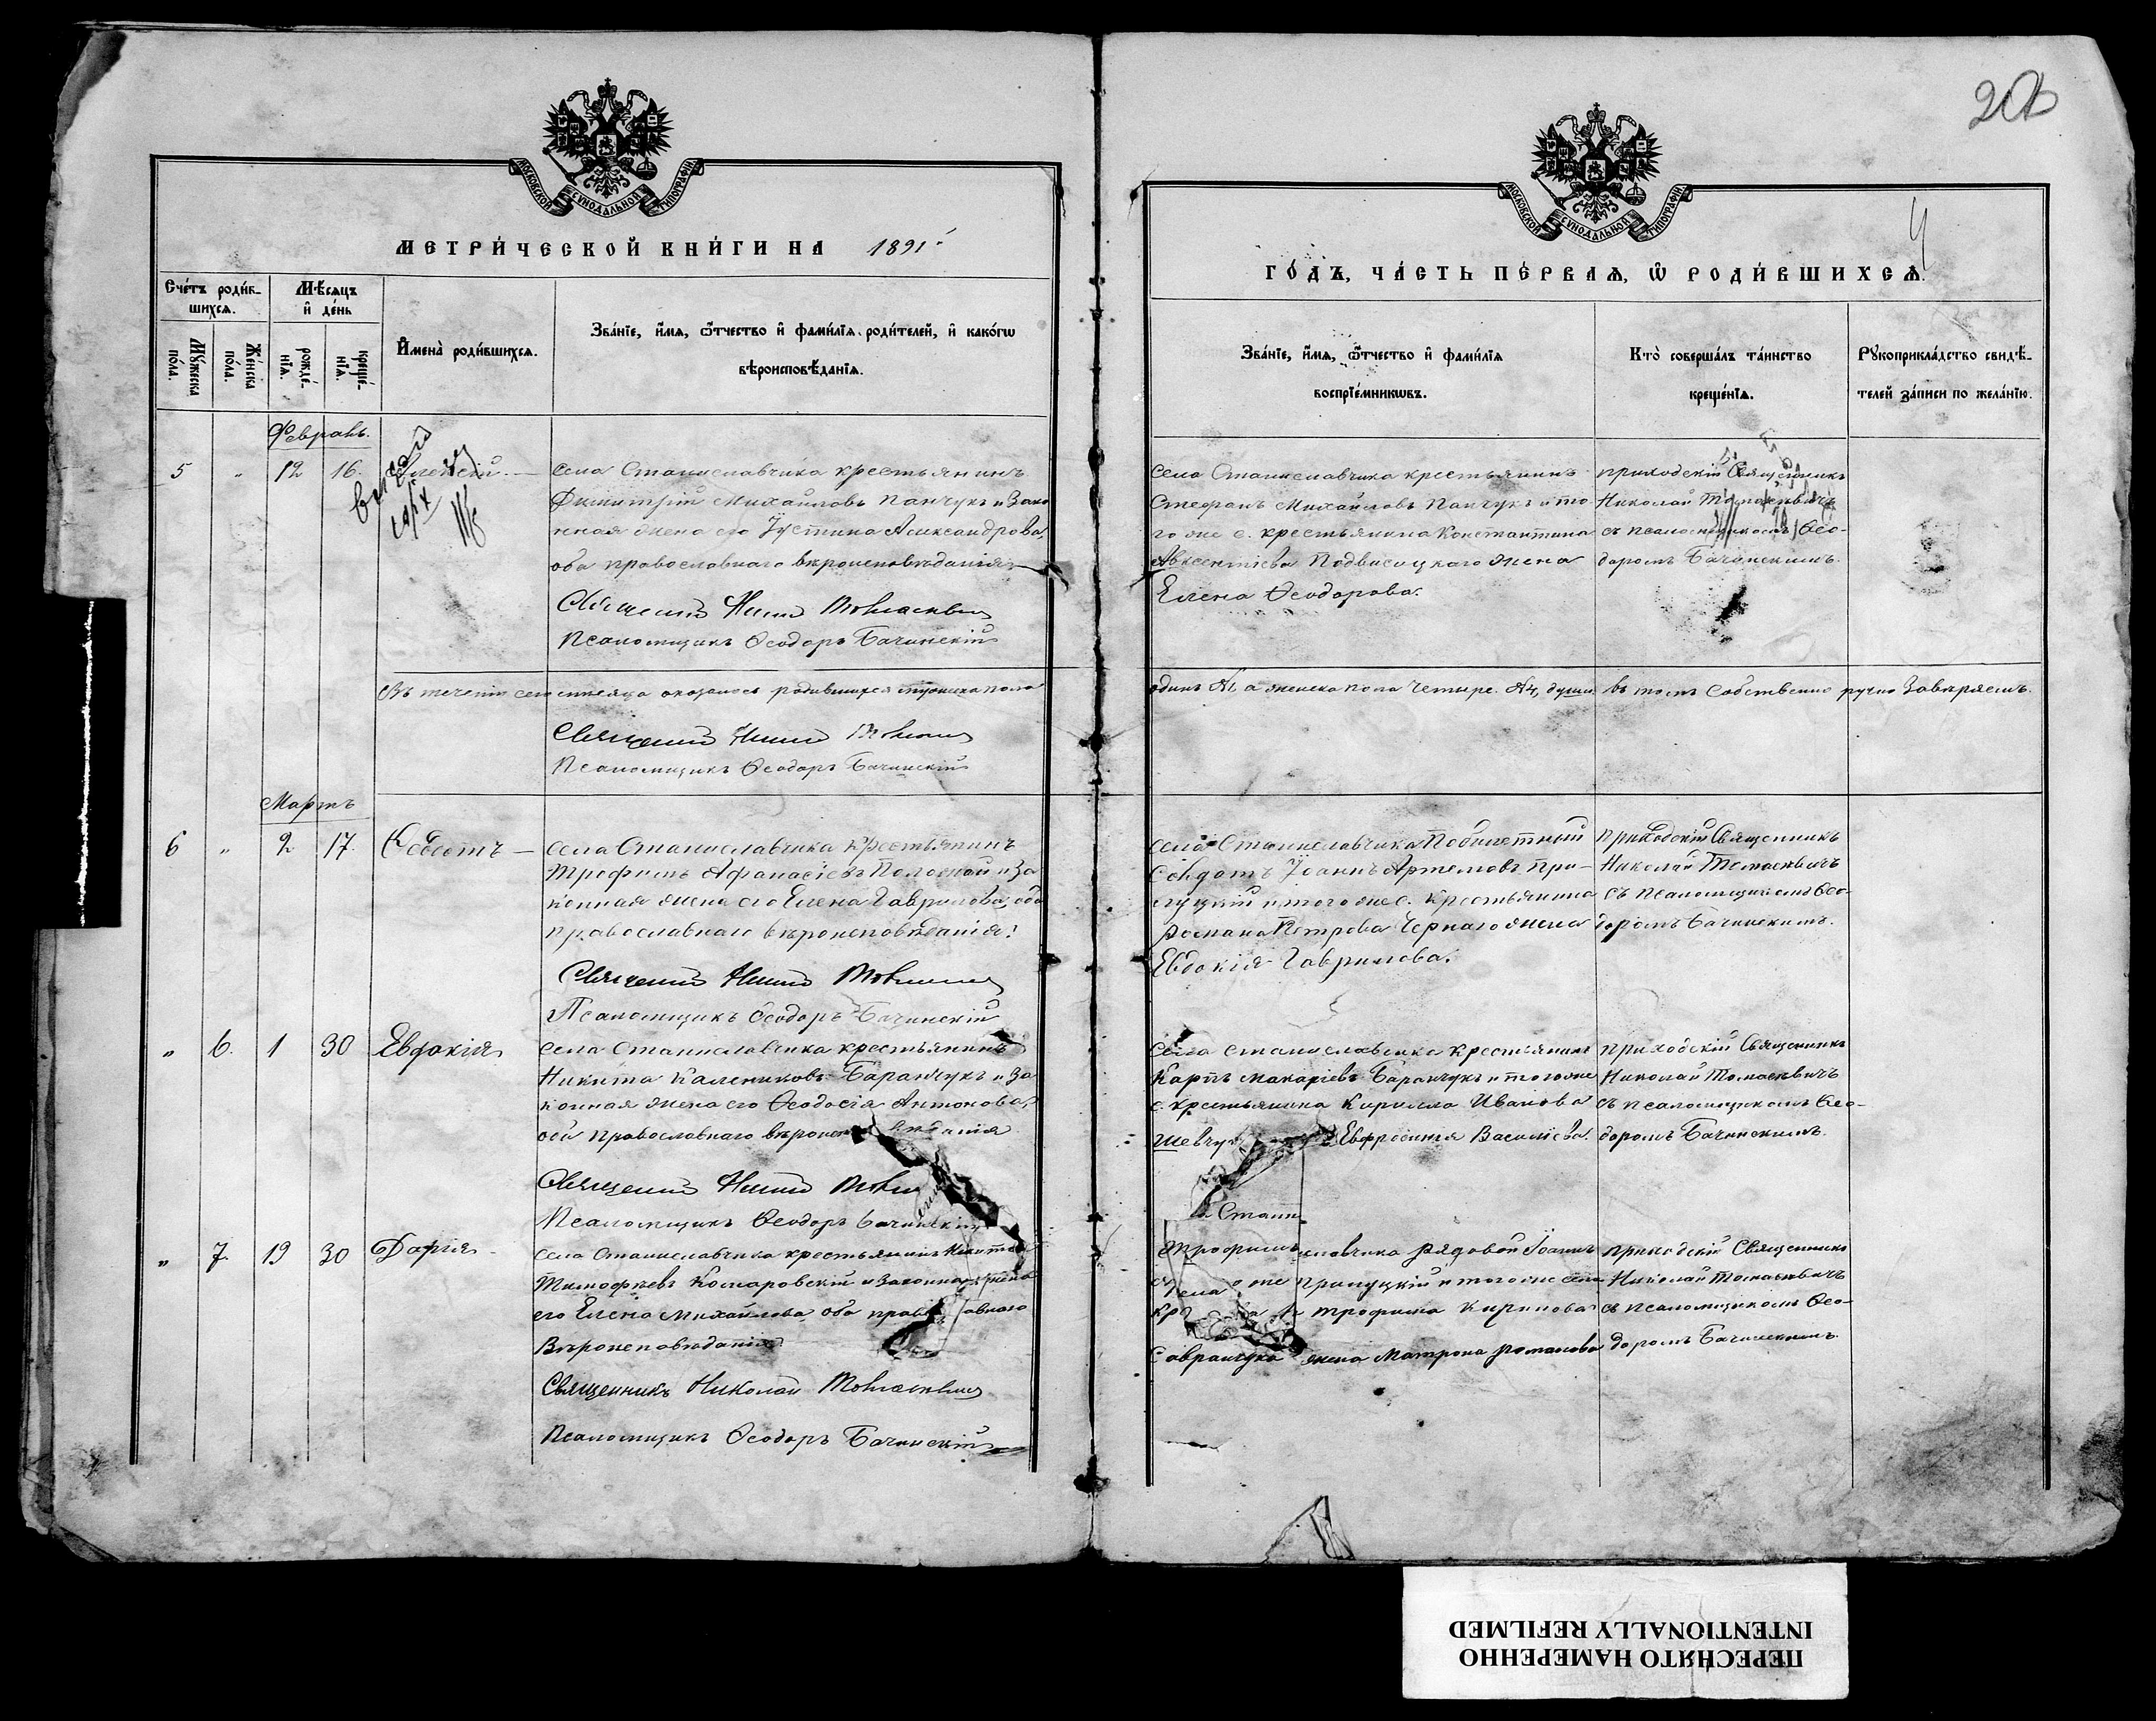 МОСКОВСКОЙ СѴНОДАЛЬНОЙ ТИПОГРАФІИ
МЕТРИ́ЧЕСКОЙ КНИ́ГИ НА 1891
Счéтъ роди́вшихсѧ.
Мѣ́сяцъ и҆ де́нь
Мꙋ́жеска по́ла.
Же́нска по́ла.
рожде́нїѧ.
креще́нїѧ.
И҆мена̀ роди́вшихсѧ.
Зва́нїе, и҆́мѧ, ѻ҆́тчество и҆ фами́лїѧ роди́телей, и҆ како́гѡ
вѣроисповѣ́данїѧ.
Февраль.
5 " 12 16. Алексій. —
села Станиславчика крестьянинъ
Димитрій Михайловъ Панчукъ и зако
нная жена его Іустина Александрова,
оба православнаго вѣроисповѣданія.
Священникъ
Псаломщикъ Ѳеодоръ Бачинскій
Въ теченіи сего мѣсяца оказалось родившихся мужеска пола
Священникъ
Псаломщикъ Ѳеодоръ Бачинскій
Мартъ
6 " 2 17.
села Станиславчика крестьянинъ
Трофимъ Афанасіевъ и за
конная жена его Елена Гаврилова, оба
православнаго вѣроисповѣданія.
Священникъ
Псаломщикъ Ѳеодоръ Бачинскій
" 6. 1 30 Евдокія
села Станиславчика крестьянинъ
Никита Калениковъ Баранчукъ и за
конная жена его Ѳеодосія Антонова,
оба православнаго
Священникъ
Псаломщикъ Ѳеодоръ Бачинскій
" 7. 19 30 Дарія
села Станиславчика крестьянинъ Никита
Тимофѣевъ Комаровскій и законная жена
его Елена Михайлова, оба
Вѣроисповѣданія
Священникъ Николай Томасевичъ
Псаломщикъ Ѳеодоръ Бачинскій
МОСКОВСКОЙ СѴНОДАЛЬНОЙ ТИПОГРАФІИ
4
ГО́ДЪ, ЧА́СТЬ ПЕ́РВАѦ, Ѡ҆ РОДИ́ВШИХСѦ.
Зва́нїе, и҆́мѧ, ѻ҆́тчество и҆ фами́лїѧ
воспрїе́мникѡвъ.
Кто̀ соверша́лъ та́инство
креще́нїѧ.
Рꙋкоприкла́дство свидѣ́телей за́писи по жела́нїю.
села Станиславчика крестьянинъ
Стефанъ Михайловъ Панчукъ и то-
го же с. крестьянина Константина
Авксентіева Подвисоцкаго жена
Елена Ѳеодорова.
приходскій Священникъ
Николай Томасевичъ
съ псаломщикомъ Ѳео-
доромъ Бачинскимъ.
одинъ №1, а женска пола четыре №4, души. въ томъ собственно ручно завѣряемъ.
села Станиславчика
Іоаннъ Артемовъ При-
луцкій и того же с. крестьянина
Романа Петрова Чернаго жена
Евдокія Гаврилова.
приходскій Священникъ
Николай Томасевичъ
съ псаломщикомъ Ѳео-
доромъ Бачинскимъ.
села Станиславчика крестьянинъ
Карпъ Макаріевъ Баранчукъ и того же
с. крестьянина Кирилла Иванова
Ефросинія Василіева.
приходскій Священникъ
Николай Томасевичъ
съ псаломщикомъ Ѳео-
доромъ Бачинскимъ.
Стани
рядовой Іоаннъ
Прилуцкій и того же села
Трофима Кирилова
Савранчука жена Матрона Романова
приходскій Священникъ
Николай Томасевичъ
съ псаломщикомъ Ѳео-
доромъ Бачинскимъ.
ПЕРЕСНЯТО НАМЕРЕННО
INTENTIONALLY REFILMED